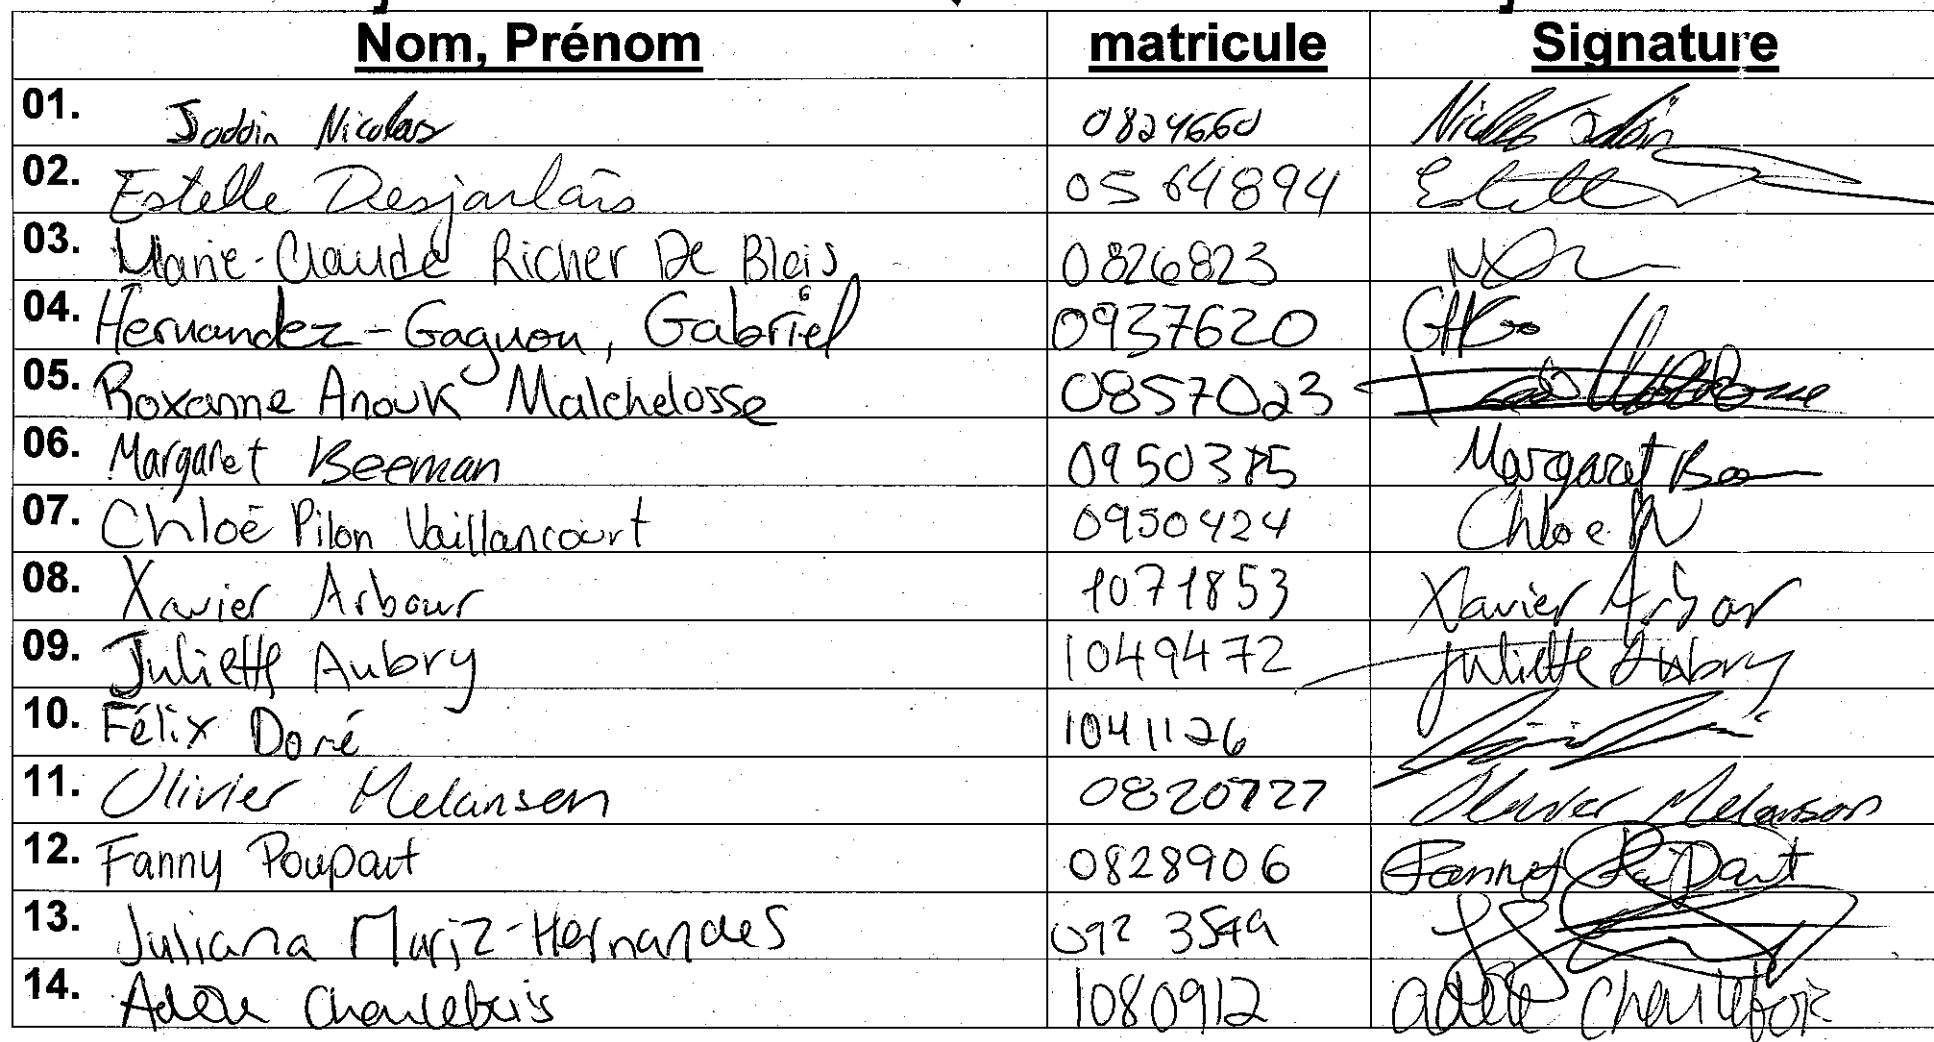 Nom, Prénom matricule Signature
01. Jaddin Nicolas 0824660 Nicolas Jaddin
02. Estelle Desjarlais 0564894 Estelle
03. Marie-Claude Richer De Blois 0826823
04. Hernandez-Gagnon, Gabriel 0937620 GHG
05. Roxanne Anouk Malchelosse 0857023
06. Margaret Beeman 0950375 Margaret Bee
07. Chloé Pilon Vaillancourt 0950424 Chloe PV
08. Xavier Arbour 1071853 Xavier Arbour
09. Juliette Aubry 1049472 Juliette Aubry
10. Félix Doré 1041126
11. Olivier Melanson 0820727 Olivier Melanson
12. Fanny Poupart 0828906 Fanny Poupart
13. Juliana Mariz-Hernandes 092 3549
14. Adèle Charlebois 1080912 adèle Charlebois